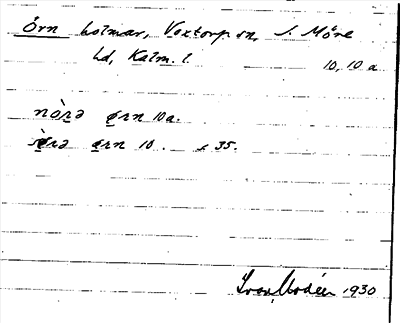 Örn holmar, Voxtorp sn, S. Möre
hd, Kalm. l. 10, 10 a
nòrə ørn 10a.
sø̀rə ørn 10. s 35.
Ivar Modéer 1930